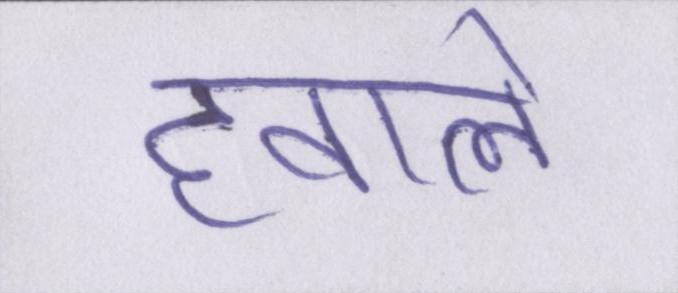 हवाले